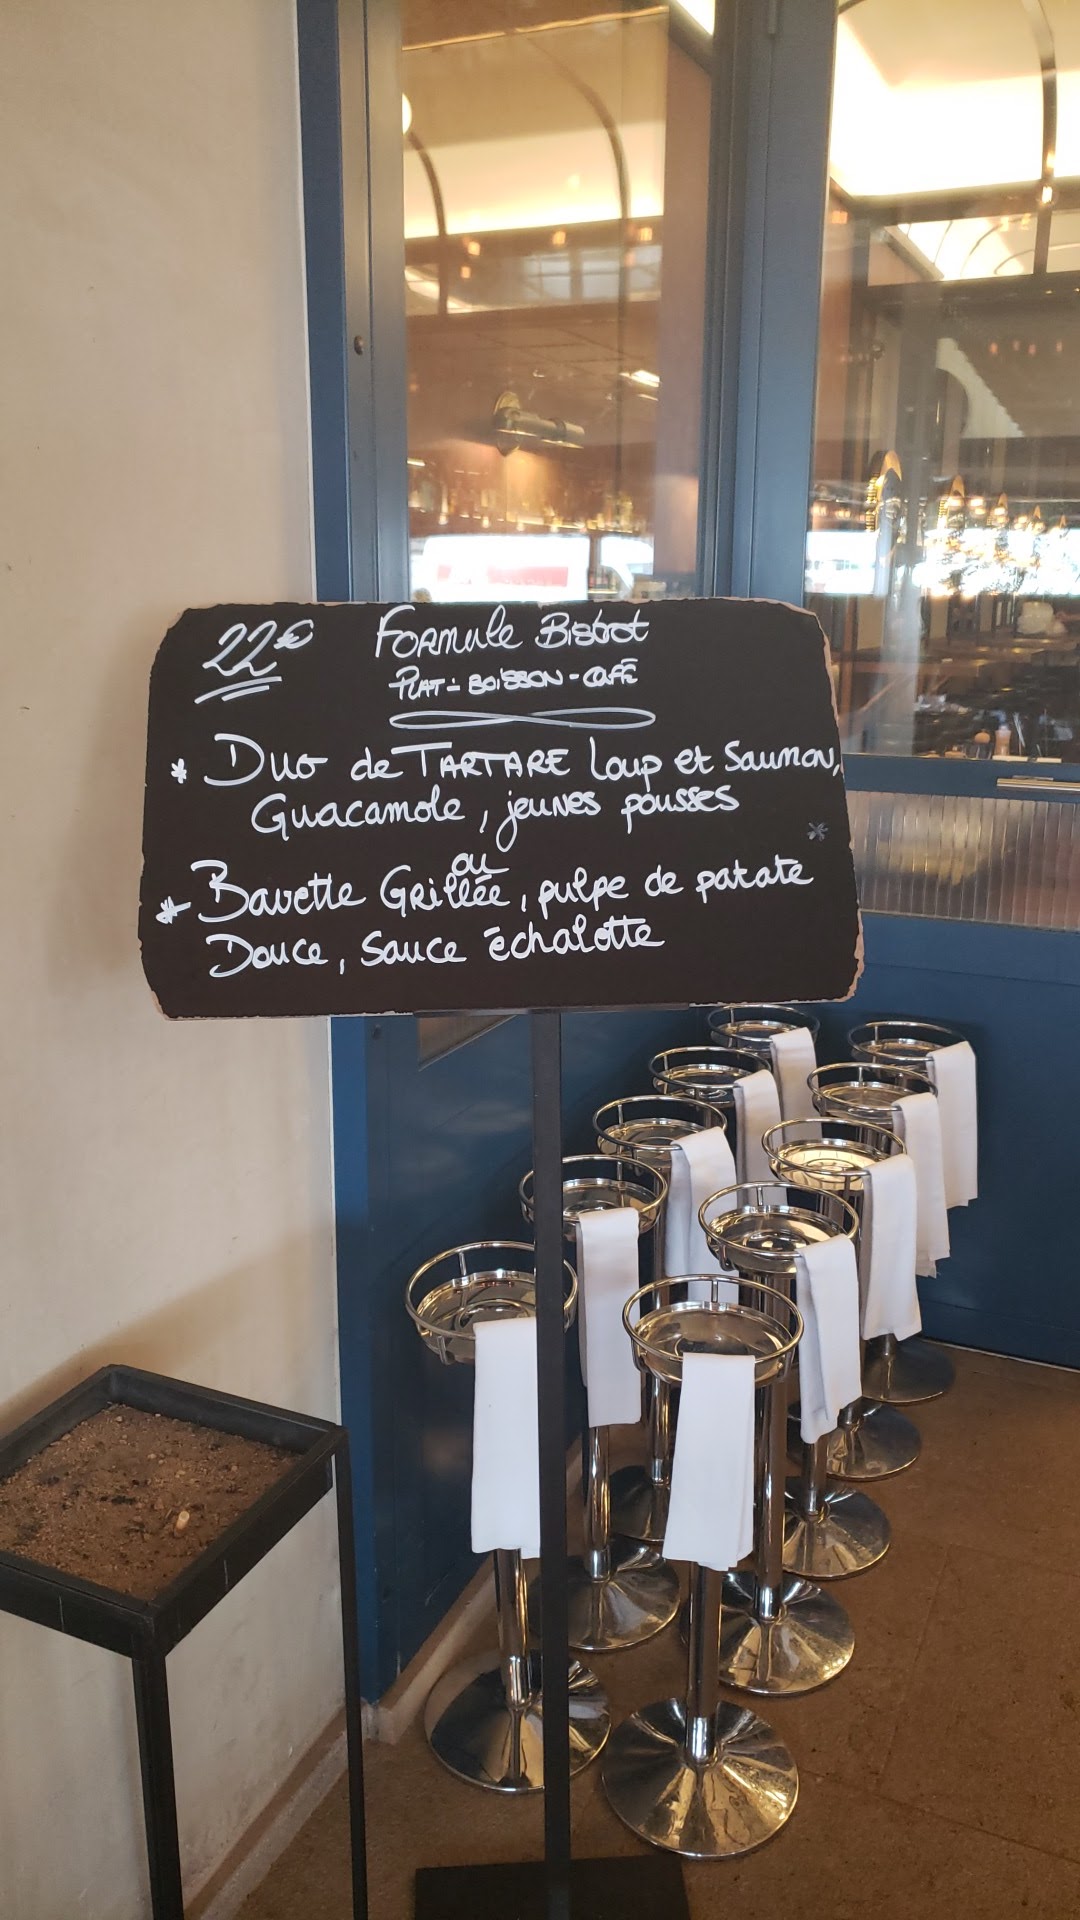 22€ Formule Bistrot
PLAT - BOISSON - CAFÉ
* Duo de TARTARE Loup et Saumon,
Guacamole, jeunes pousses *
ou
* Bavette Grillée, pulpe de patate
Douce, Sauce échalotte